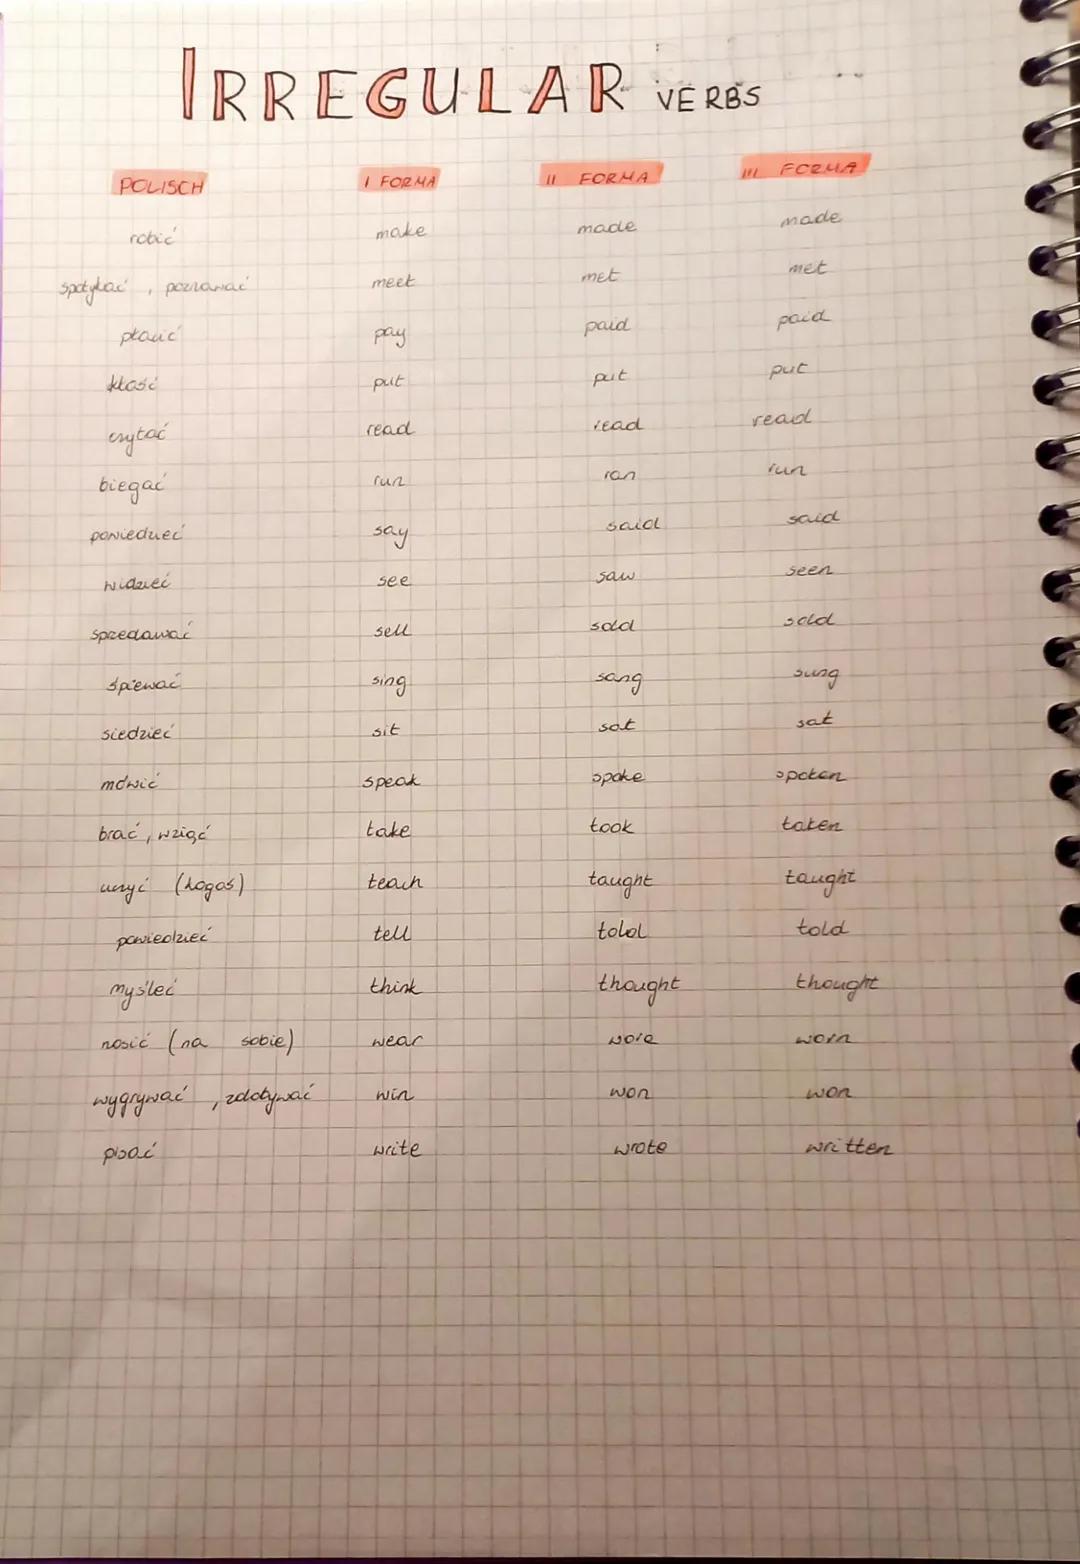 IRREGULAR VERBS
POLISCH I FORMA II FORMA III FORMA
robić make made made
spotykać, poznawać meet met met
płacić pay paid paid
kłaść put put put
czytać read read read
biegać run ran run
powiedzieć say said said
widzieć see saw seen
sprzedawać sell sold sold
śpiewać sing sang sung
siedzieć sit sat sat
mówić speak spoke spoken
brać, wziąć take took taken
uczyć (kogoś) teach taught taught
powiedzieć tell told told
myśleć think thought thought
nosić (na sobie) wear wore worn
wygrywać, zdobywać win won won
pisać write wrote written